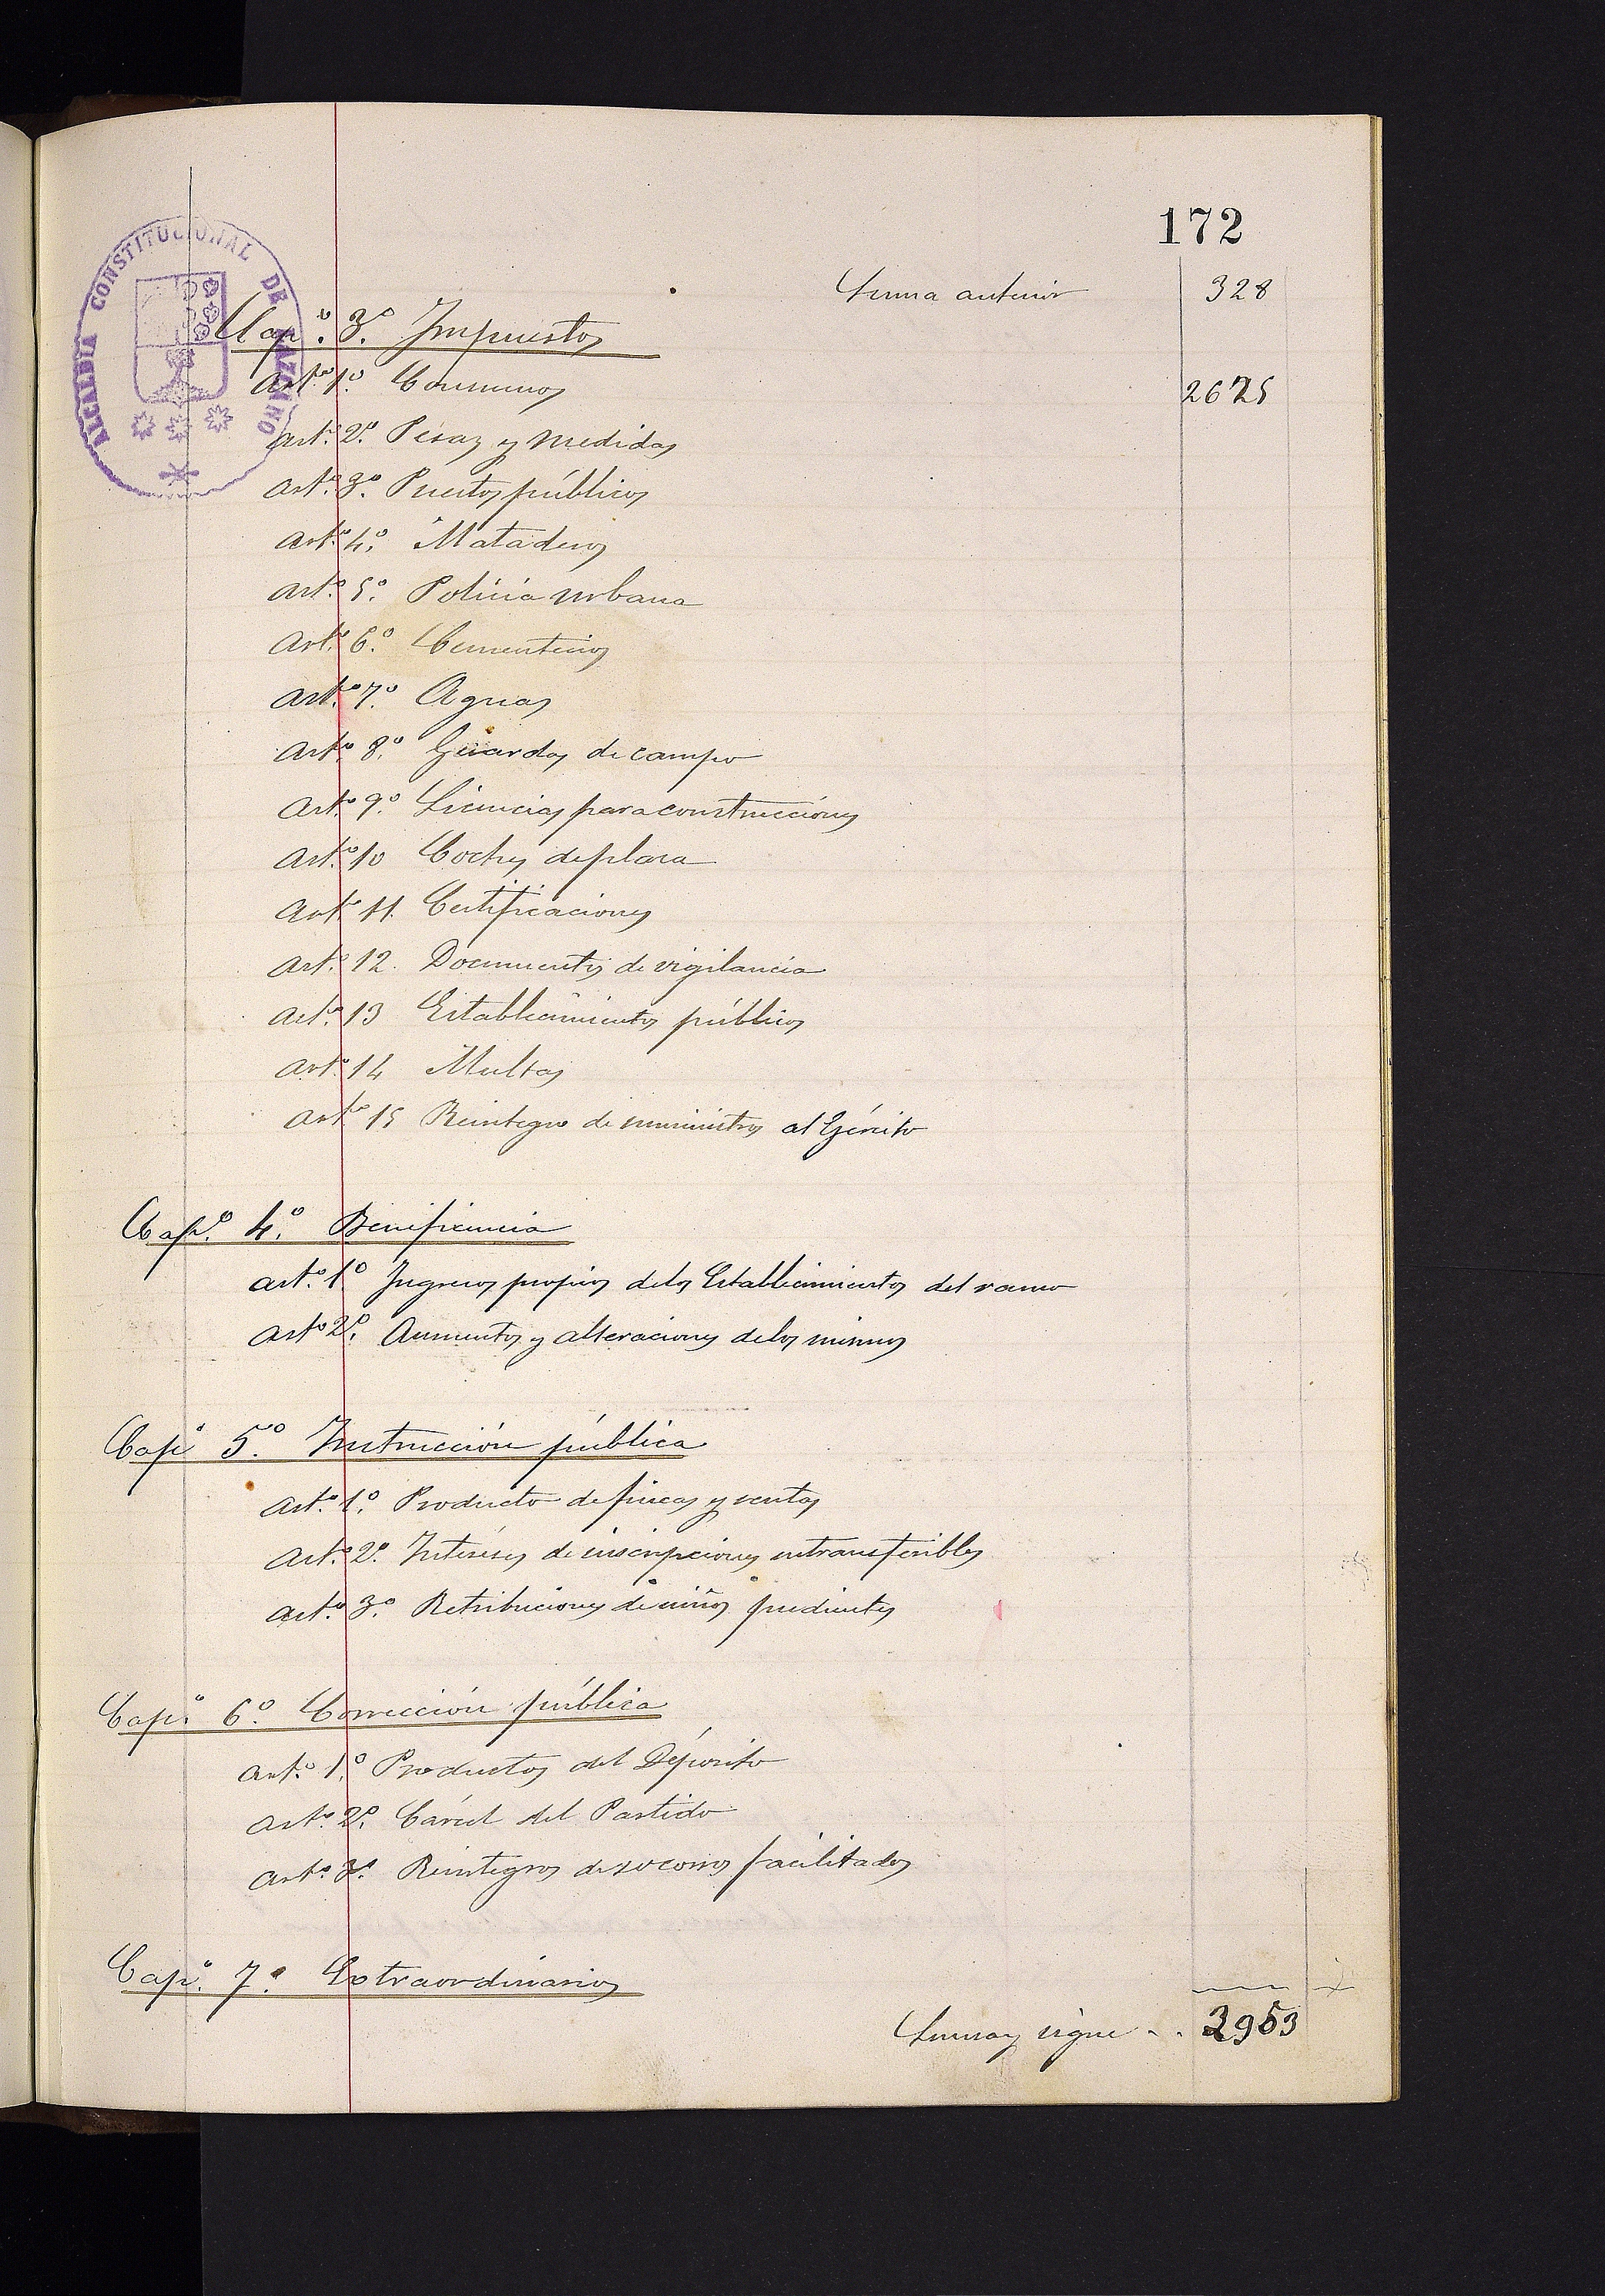 172
Suma anterior 328
ALCALDIA CONSTITUCIONAL DE
Cap.º 3.º Impuestos
Art.º 1.º Consumos 2625
Art.º 2.º Pesas y medidas
Art.º 3.º Puestos públicos
Art.º 4.º Mataderos
Art.º 5.º Policia urbana
Art.º 6.º Cementerios
Art.º 7.º Aguas
Art.º 8.º Guardas de campo
Art.º 9.º Licencias para construcciónes
Art.º 10 Coches de plaza
Art.º 11. Certificaciones
Art.º 12. Documentos de vigilancia
Art.º 13 Establecimientos públicos
Art.º 14 Multas
Art.º 15 Reintegro de suministros al Ejército
Cap.º 4.º Beneficencia
art.º 1.º Ingresos propios de los Establecimientos del ramo
art.º 2.º Aumentos y alteraciones de los mismos
Cap.º 5.º Instrucción pública
art.º 1.º Producto de fincas y rentas
art.º 2.º Intereses de inscripciones intransferibles
art.º 3.º Retribuciones de niños pudientes
Cap.º 6.º Corrección pública
art.º 1.º Productos del Déposito
art.º 2.º Cárcel del Partido
art.º 3.º Reintegros de socorros facilitados
Cap.º 7.º Extraordinarios
Suma y sigue . . 2953